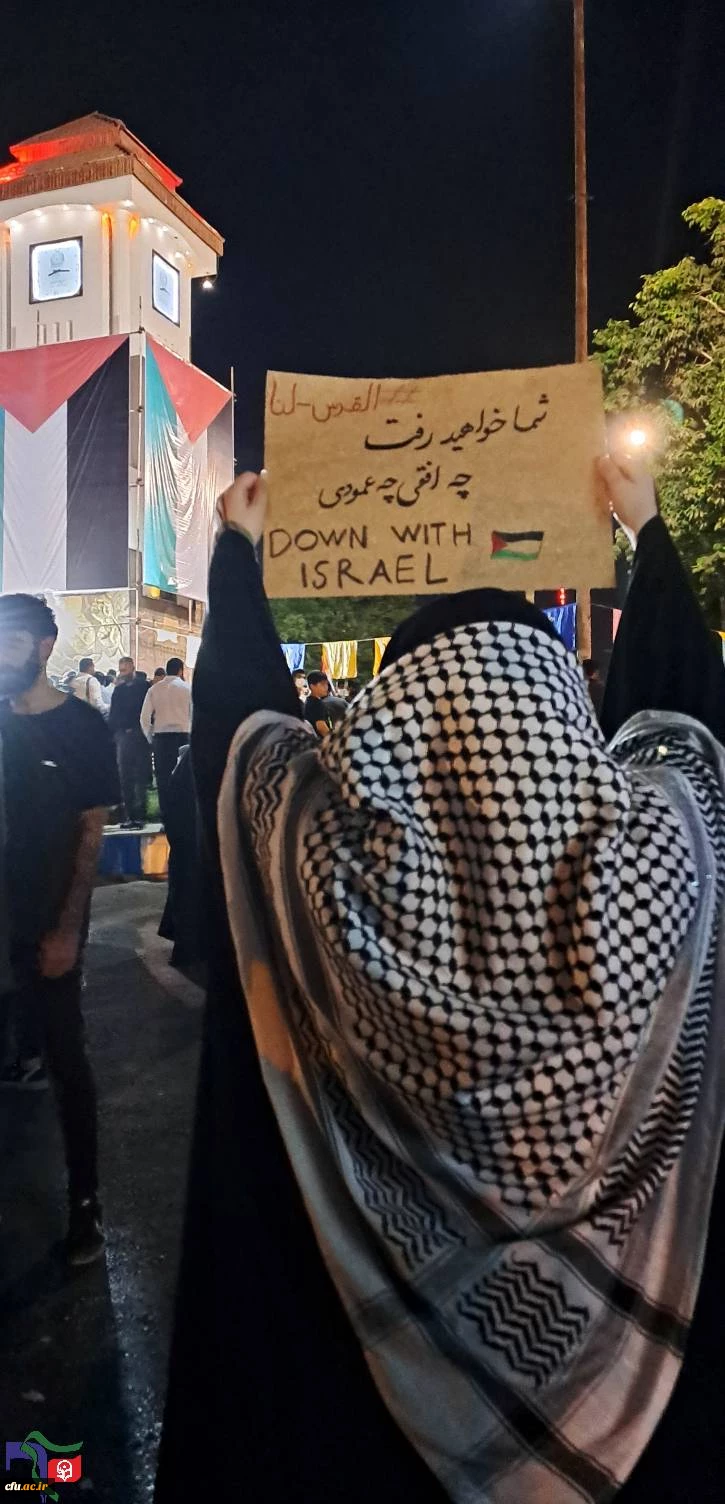 #القدس-لنا
شما خواهید رفت
چه افقی چه عمودی
DOWN WITH
ISRAEL
cfu.ac.ir